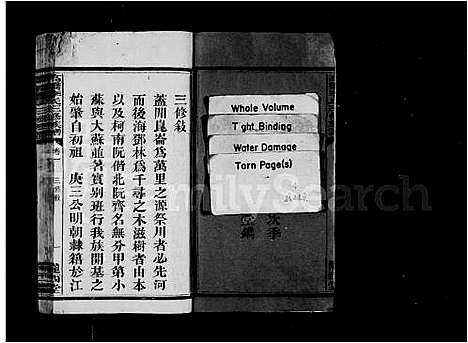 三修敍
蓋聞崑崙為萬里之源祭川者必先河
而後海鄧林為千尋之木滋樹者由本
以及柯南阮偕北阮齊名無分甲第小
蘇與大蘇並著實別班行我族開基之
始肇自初祖 庚三公明朝隸籍於江
卷
三修敍
一
Whole Volume
Tight Binding
Water Damage
Torn Page(s)
FamilySearch